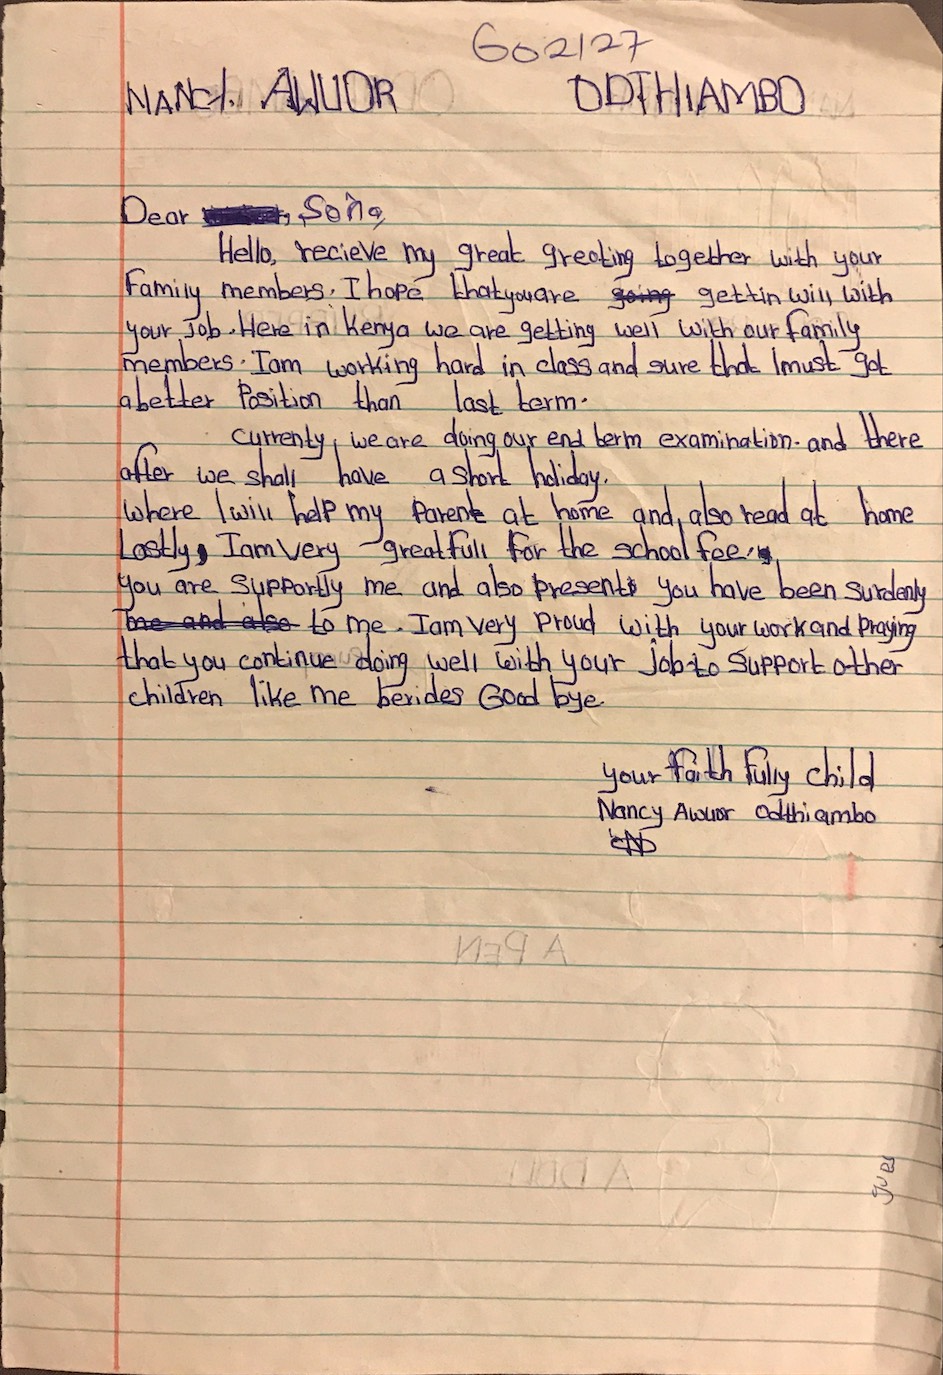 602127
NANCY. AWUOR ODTHIAMBO
Dear
Hello, recieve my great greeting together with your
Family members. I hope thatyouare going gettin will with
your Job. Here in Kenya we are getting well with our family
members. Iam working hard in class and sure that Imust got
abetter Position than last term.
currenty, we are doing our end term examination. and there
after we shall have a short holiday.
where I will help my Parent at home and, also read at home
Lastly, Iam very greatfull for the school fee.
you are Supportly me and also presents you have been surdenly
me and also to me. Iam very proud with your work and praying
that you continue doing well with your job to support other
children like me besides Good bye.
your faith fully child
Nancy Awuor Odthiambo
A PEN
A DOLL